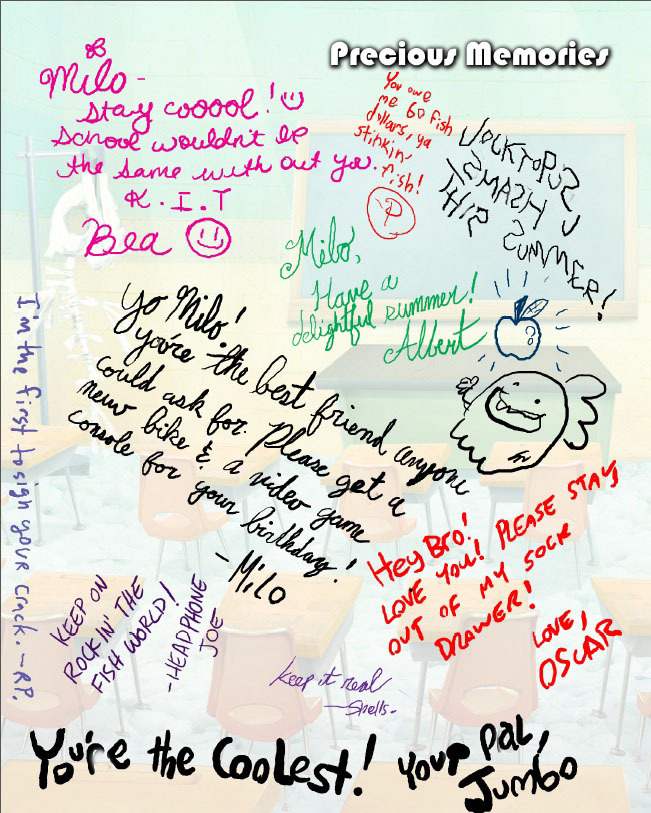 Precious Memories
Milo -
Stay cooool!
School wouldn't be
the same with out you.
K.I.T
Bea
You owe
me 60 fish
dollars, ya
stinkin'
fish!
P
JOCKTOPUS
SMASH U
THIS SUMMER!
Milo,
Have a
delightful summer!
Albert
Yo Milo!
You're the best friend anyone
could ask for. Please get a
new bike & a video game
console for your birthday!
-Milo
I'm the first to sign your crack. -RP.
Hey, Bro!
LOVE YOU! PLEASE STAY
OUT OF MY SOCK
DRAWER!
LOVE,
OSCAR
KEEP ON
ROCKIN' THE
FISH WORLD!
-HEADPHONE
JOE
keep it real
-Shells-
You're the Coolest! Your pal,
Jumbo